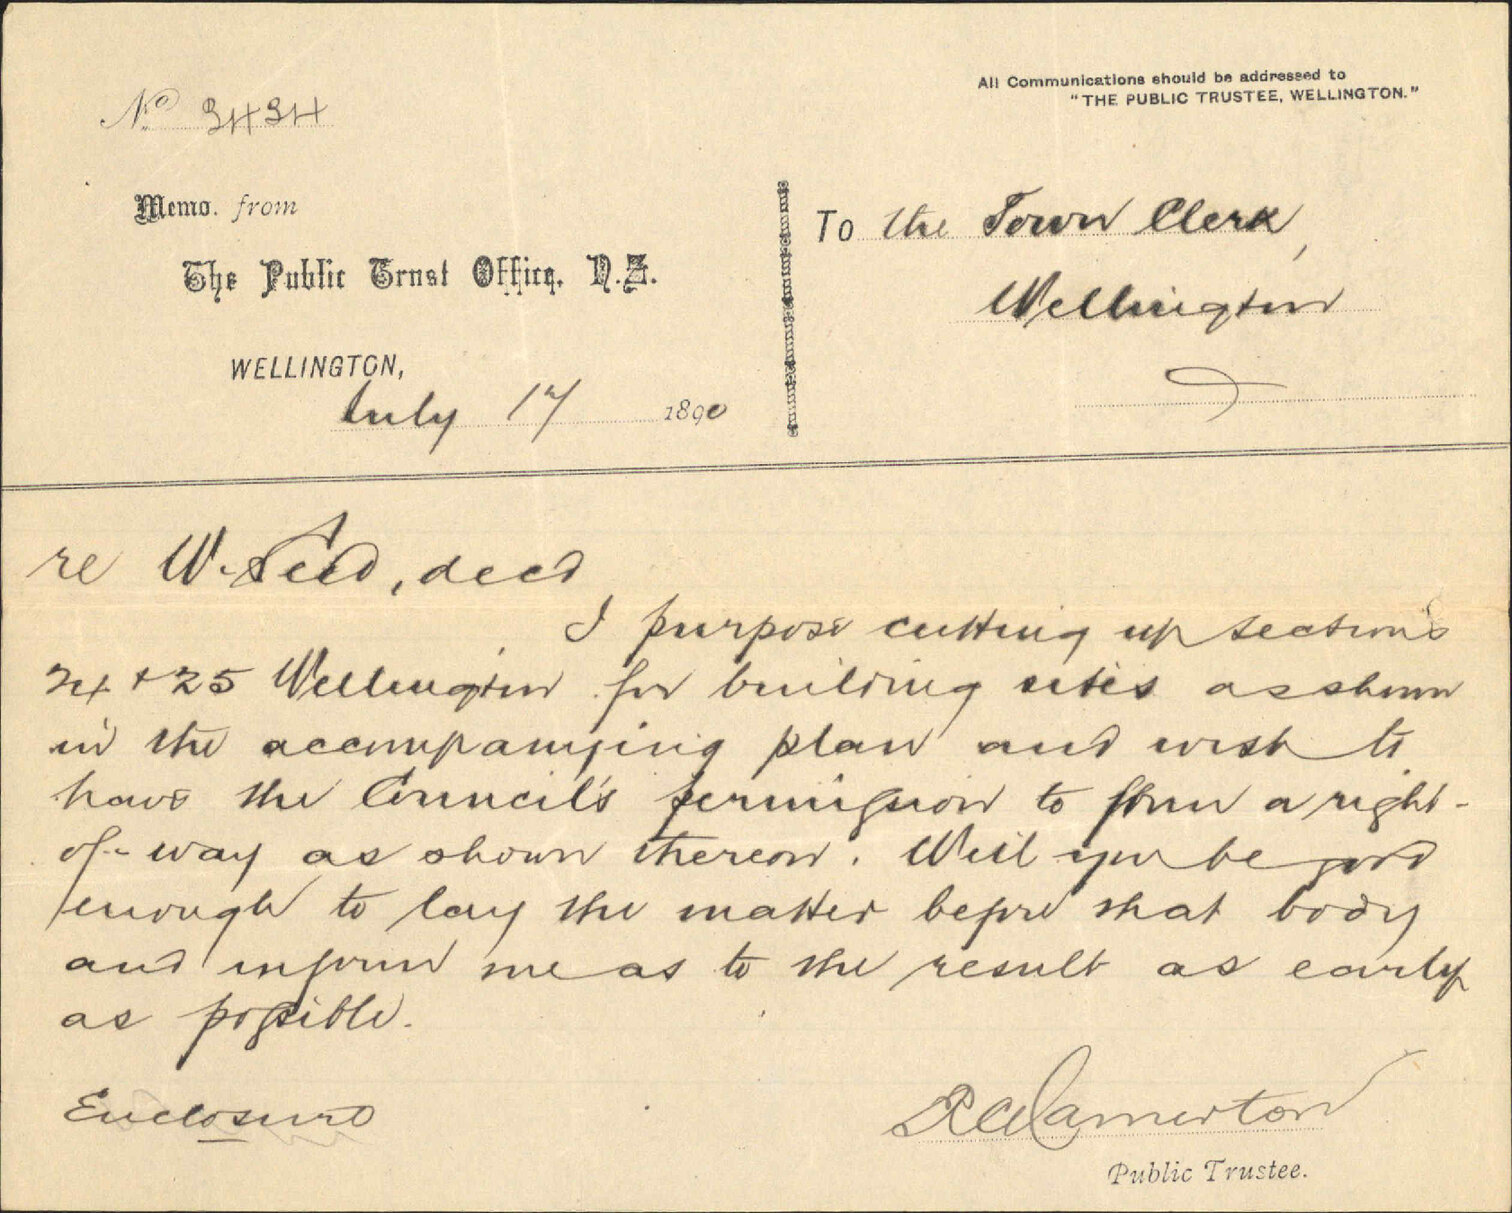 All Communications should be addressed to
"THE PUBLIC TRUSTEE, WELLINGTON."
No. 3434
Memo. from
The Public Trust Office, N.Z.
WELLINGTON,
July 17 1890
To the Town Clerk,
Wellington
re W. Seed, decd
I purpose cutting up sections
24 + 25 Wellington for building sites as shown
in the accompanying plan and wish to
have the Council's permission to form a right-
of-way as shown thereon. Will you be good
enough to lay the matter before that body
and inform me as to the result as early
as possible.
Enclosure
R C Hamerton
Public Trustee.